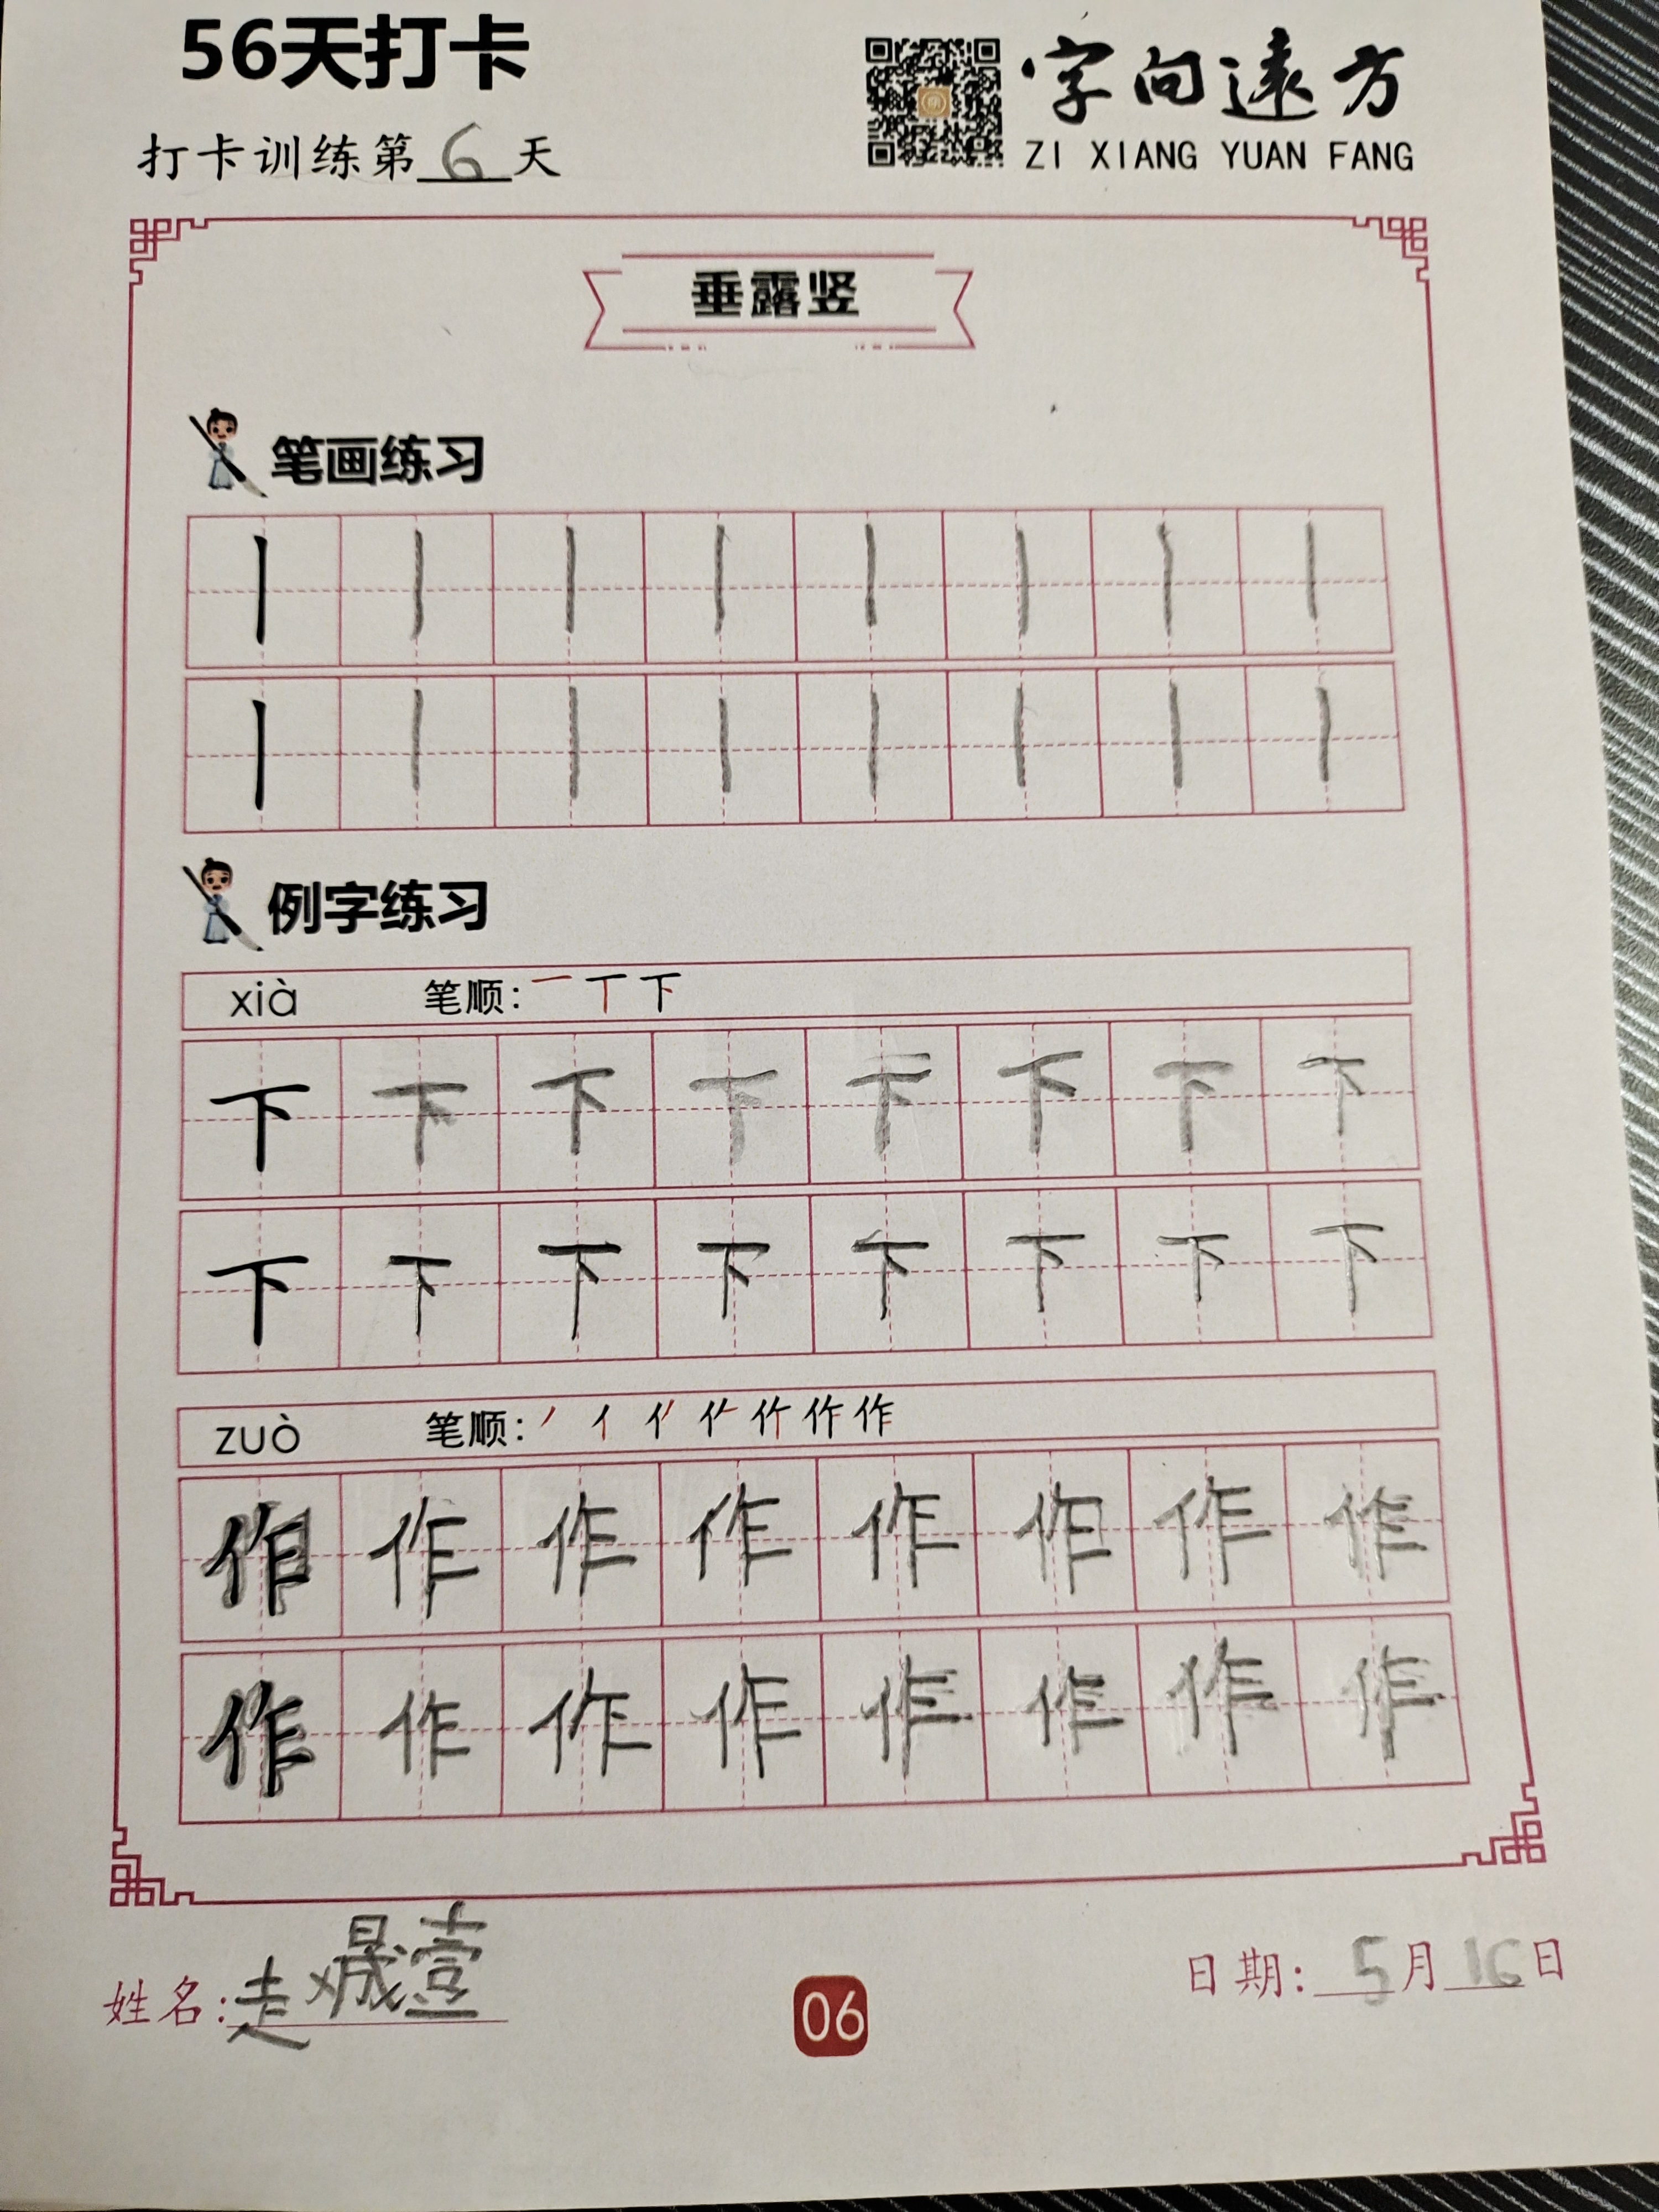 56天打卡
字向遠方
打卡训练第6天
ZI XIANG YUAN FANG
垂露竖
笔画练习
丨丨丨丨丨丨丨丨
丨丨丨丨丨丨丨丨
例字练习
xià 笔顺：一丅下
下下下下下下下下
下下下下下下下下
zuò 笔顺：丿亻作
作作作作作作作作
作作作作作作作作
姓名：赵晟壹
06
日期：5月16日